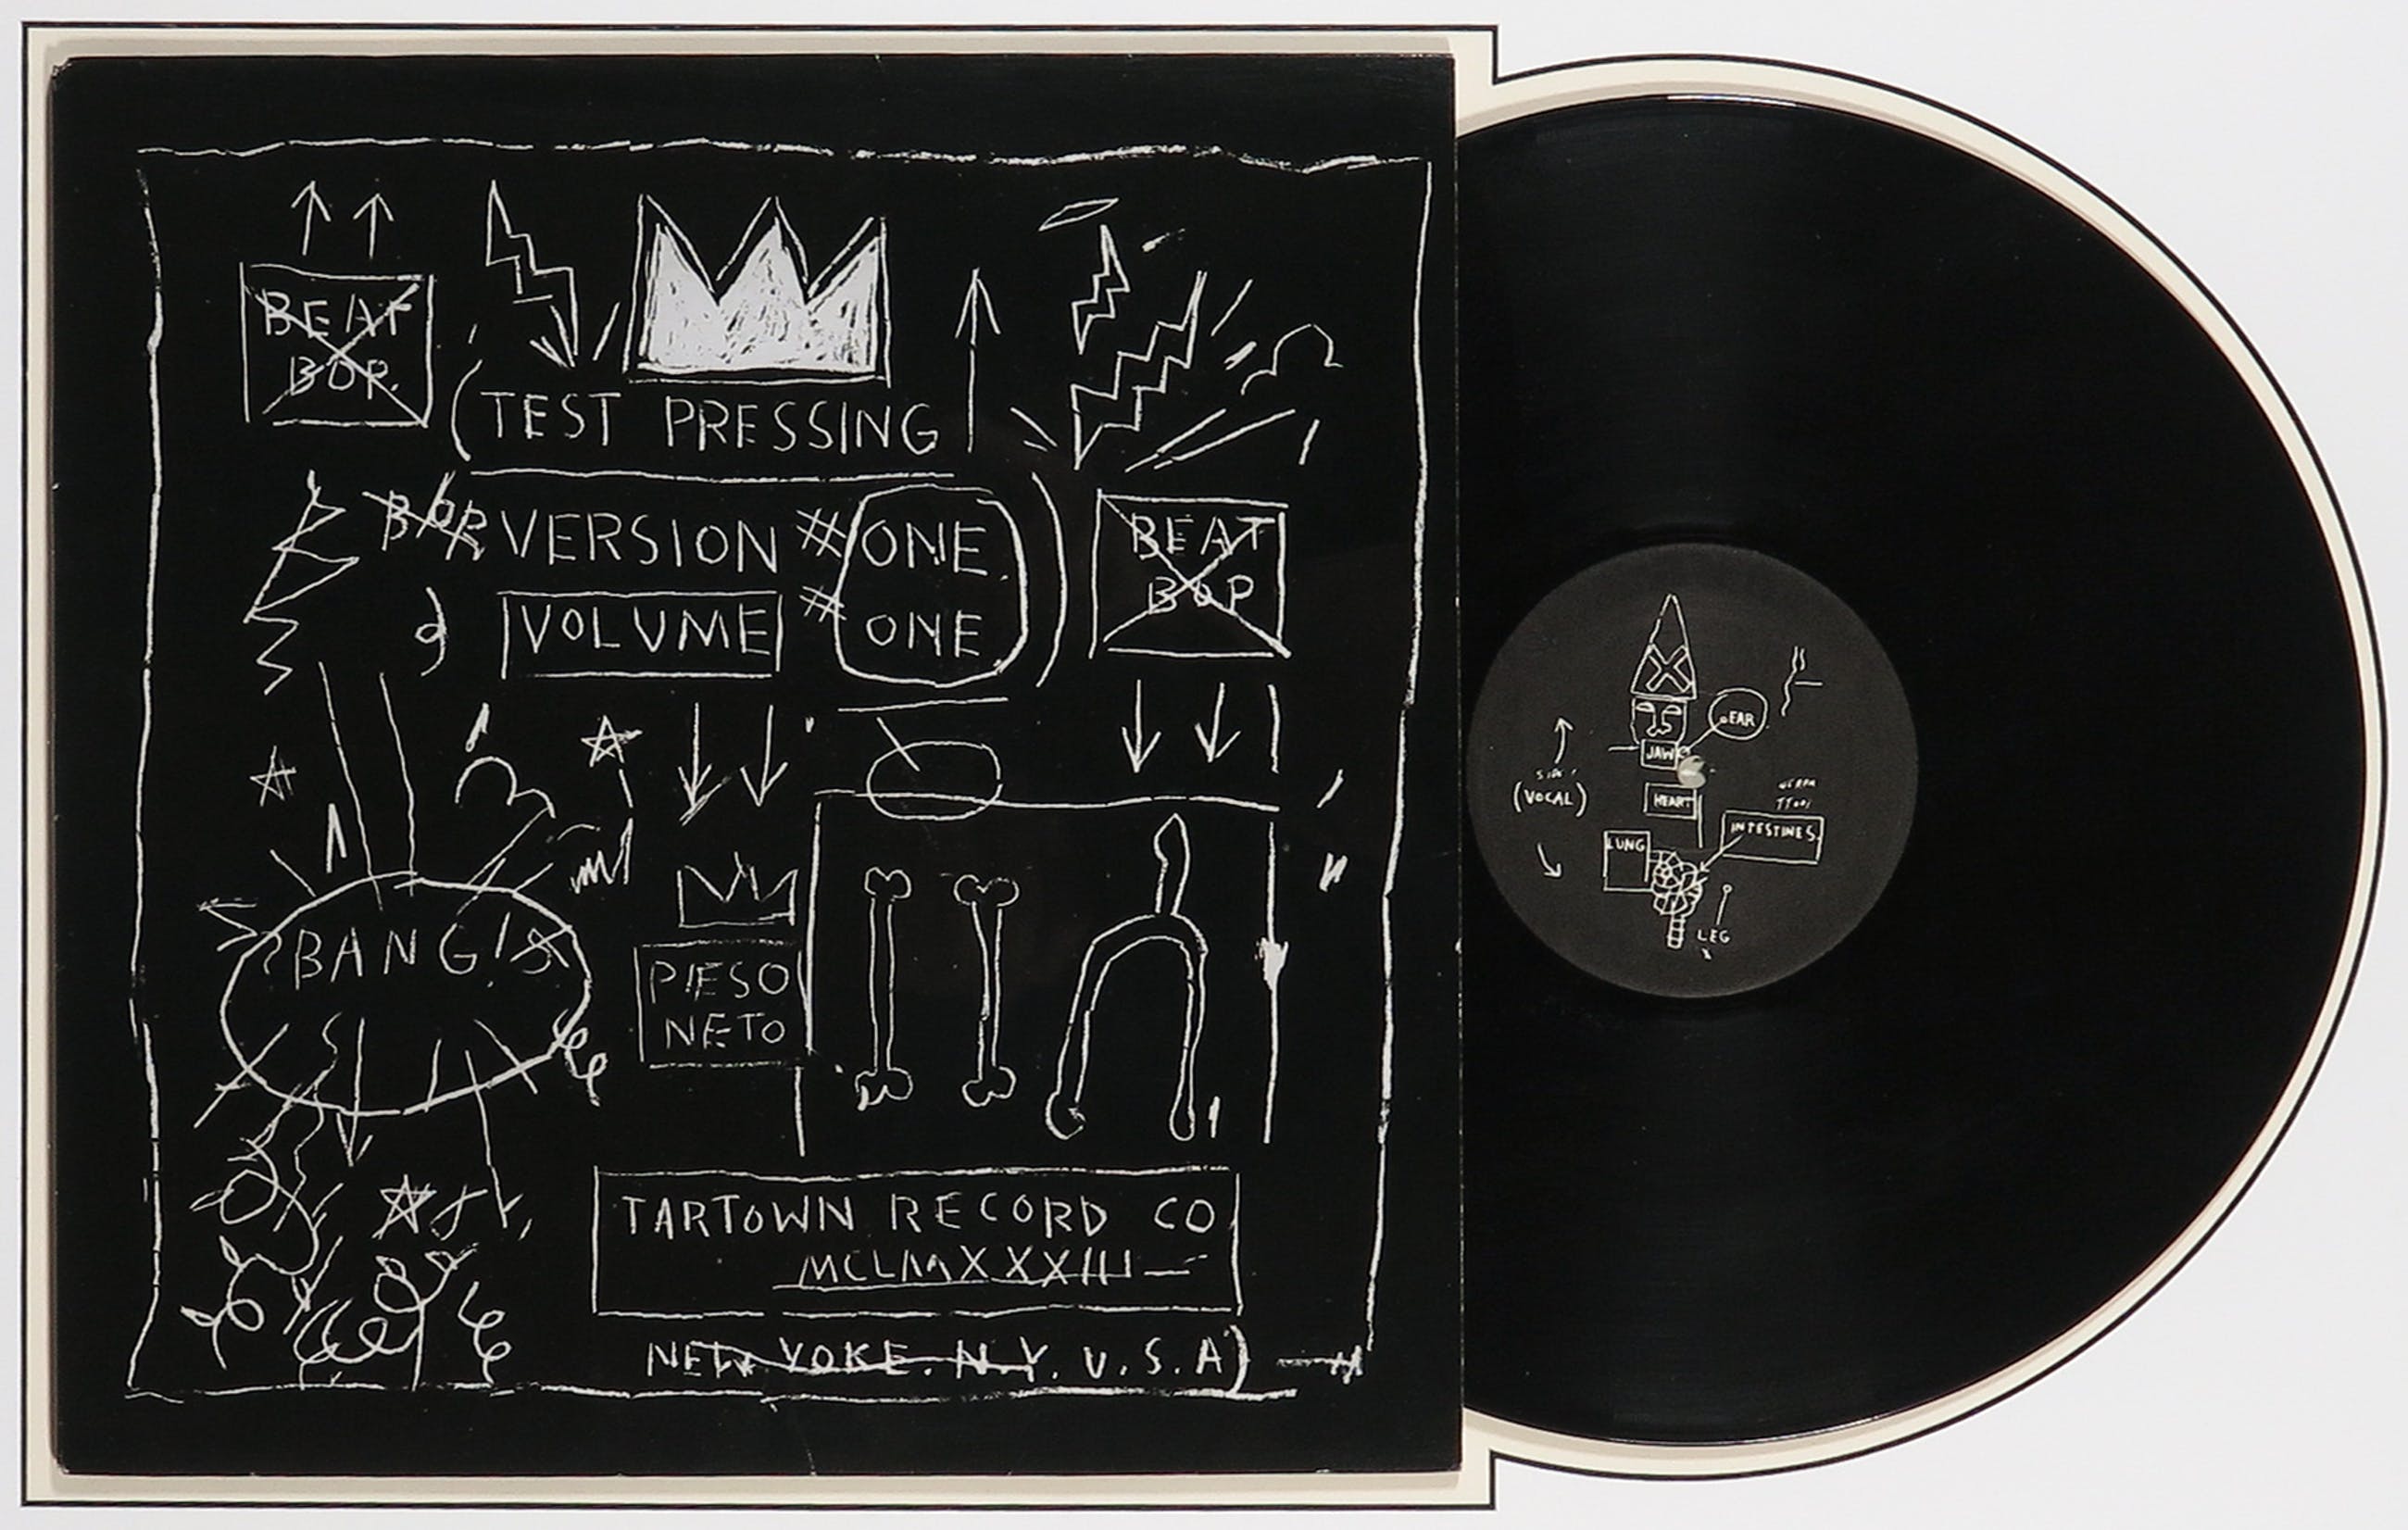 BEAT
BOP.
(TEST PRESSING
BOP VERSION #ONE.
VOLUME #ONE)
BEAT
BOP
BANG!
PIESO
NETO
TARTOWN RECORD CO.
MCLMXXXIII
NEW YOKE. N.Y. U.S.A)
EAR
JAW
(VOCAL)
HEART
INTESTINES.
LUNG
LEG
X